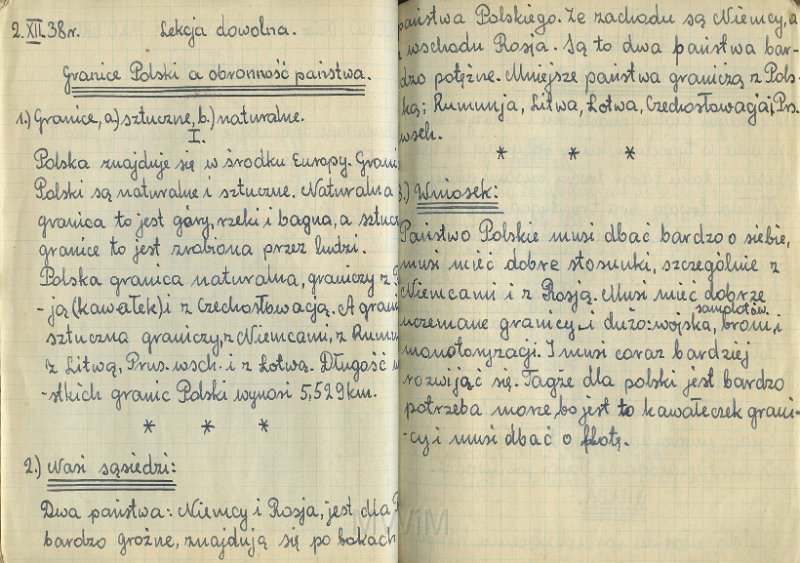 2.XII.38r. Lekcja dowolna.
Granice Polski a obronność państwa.
1.) Granice, a) sztuczne, b.) naturalne.
I.
Polska znajduje się w środku Europy. Grani
Polski są naturalne i sztuczne. Naturalna
granica to jest góry, rzeki i bagna, a sztucz
granice to jest zrobiona przez ludzi.
Polska granica naturalna, graniczy z
-ją (kawałek) i z Czechosłowacją. A grani
sztuczna graniczy, z Niemcami, z Rumu
z Litwą, Prus. wsch. i z Łotwą. Długość w
-stkich granic Polski wynosi 5,529 km.
* * *
2.) Nasi sąsiedzi:
Dwa państwa: Niemcy i Rosja, jest dla
bardzo groźne, znajdują się po bokach
państwa Polskiego. Ze zachodu są Niemcy, a
wschodu Rosja. Są to dwa państwa bar-
dzo potężne. Mniejsze państwa graniczą z Pols-
ką: Rumunja, Litwa, Łotwa, Czechosłowacja i Prs.
wsch.
* * *
3.) Wniosek:
Państwo Polskie musi dbać bardzo o siebie,
musi mieć dobre stosunki, szczególnie z
Niemcami i z Rosją. Musi mieć dobrze
samolotów
granicy i dużo: wojska, broni, i
monotoryzacji. I musi coraz bardziej
rozwijać się. Tagże dla polski jest bardzo
potrzeba morze, bo jest to kawałeczek grani-
-cy i musi dbać o flotę.
MWiM